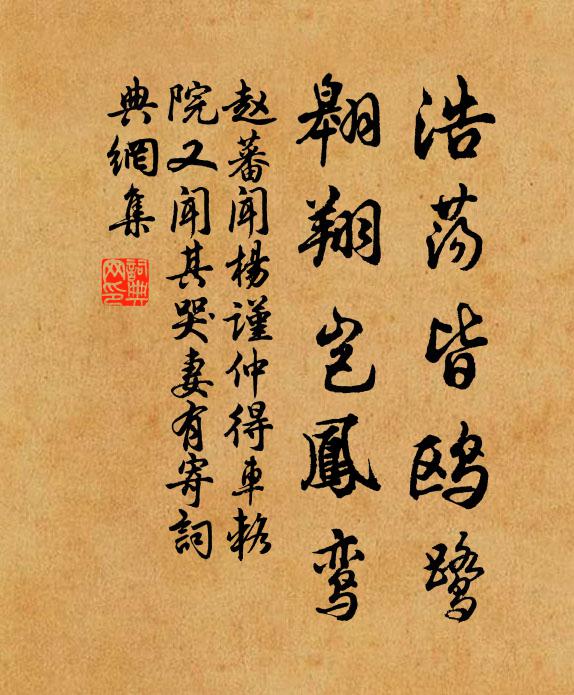 浩荡皆鸥鹭
翱翔岂凤鸾
赵蕃闻杨谨仲得车辂
院又闻其哭妻有寄词
典网集
词典网印